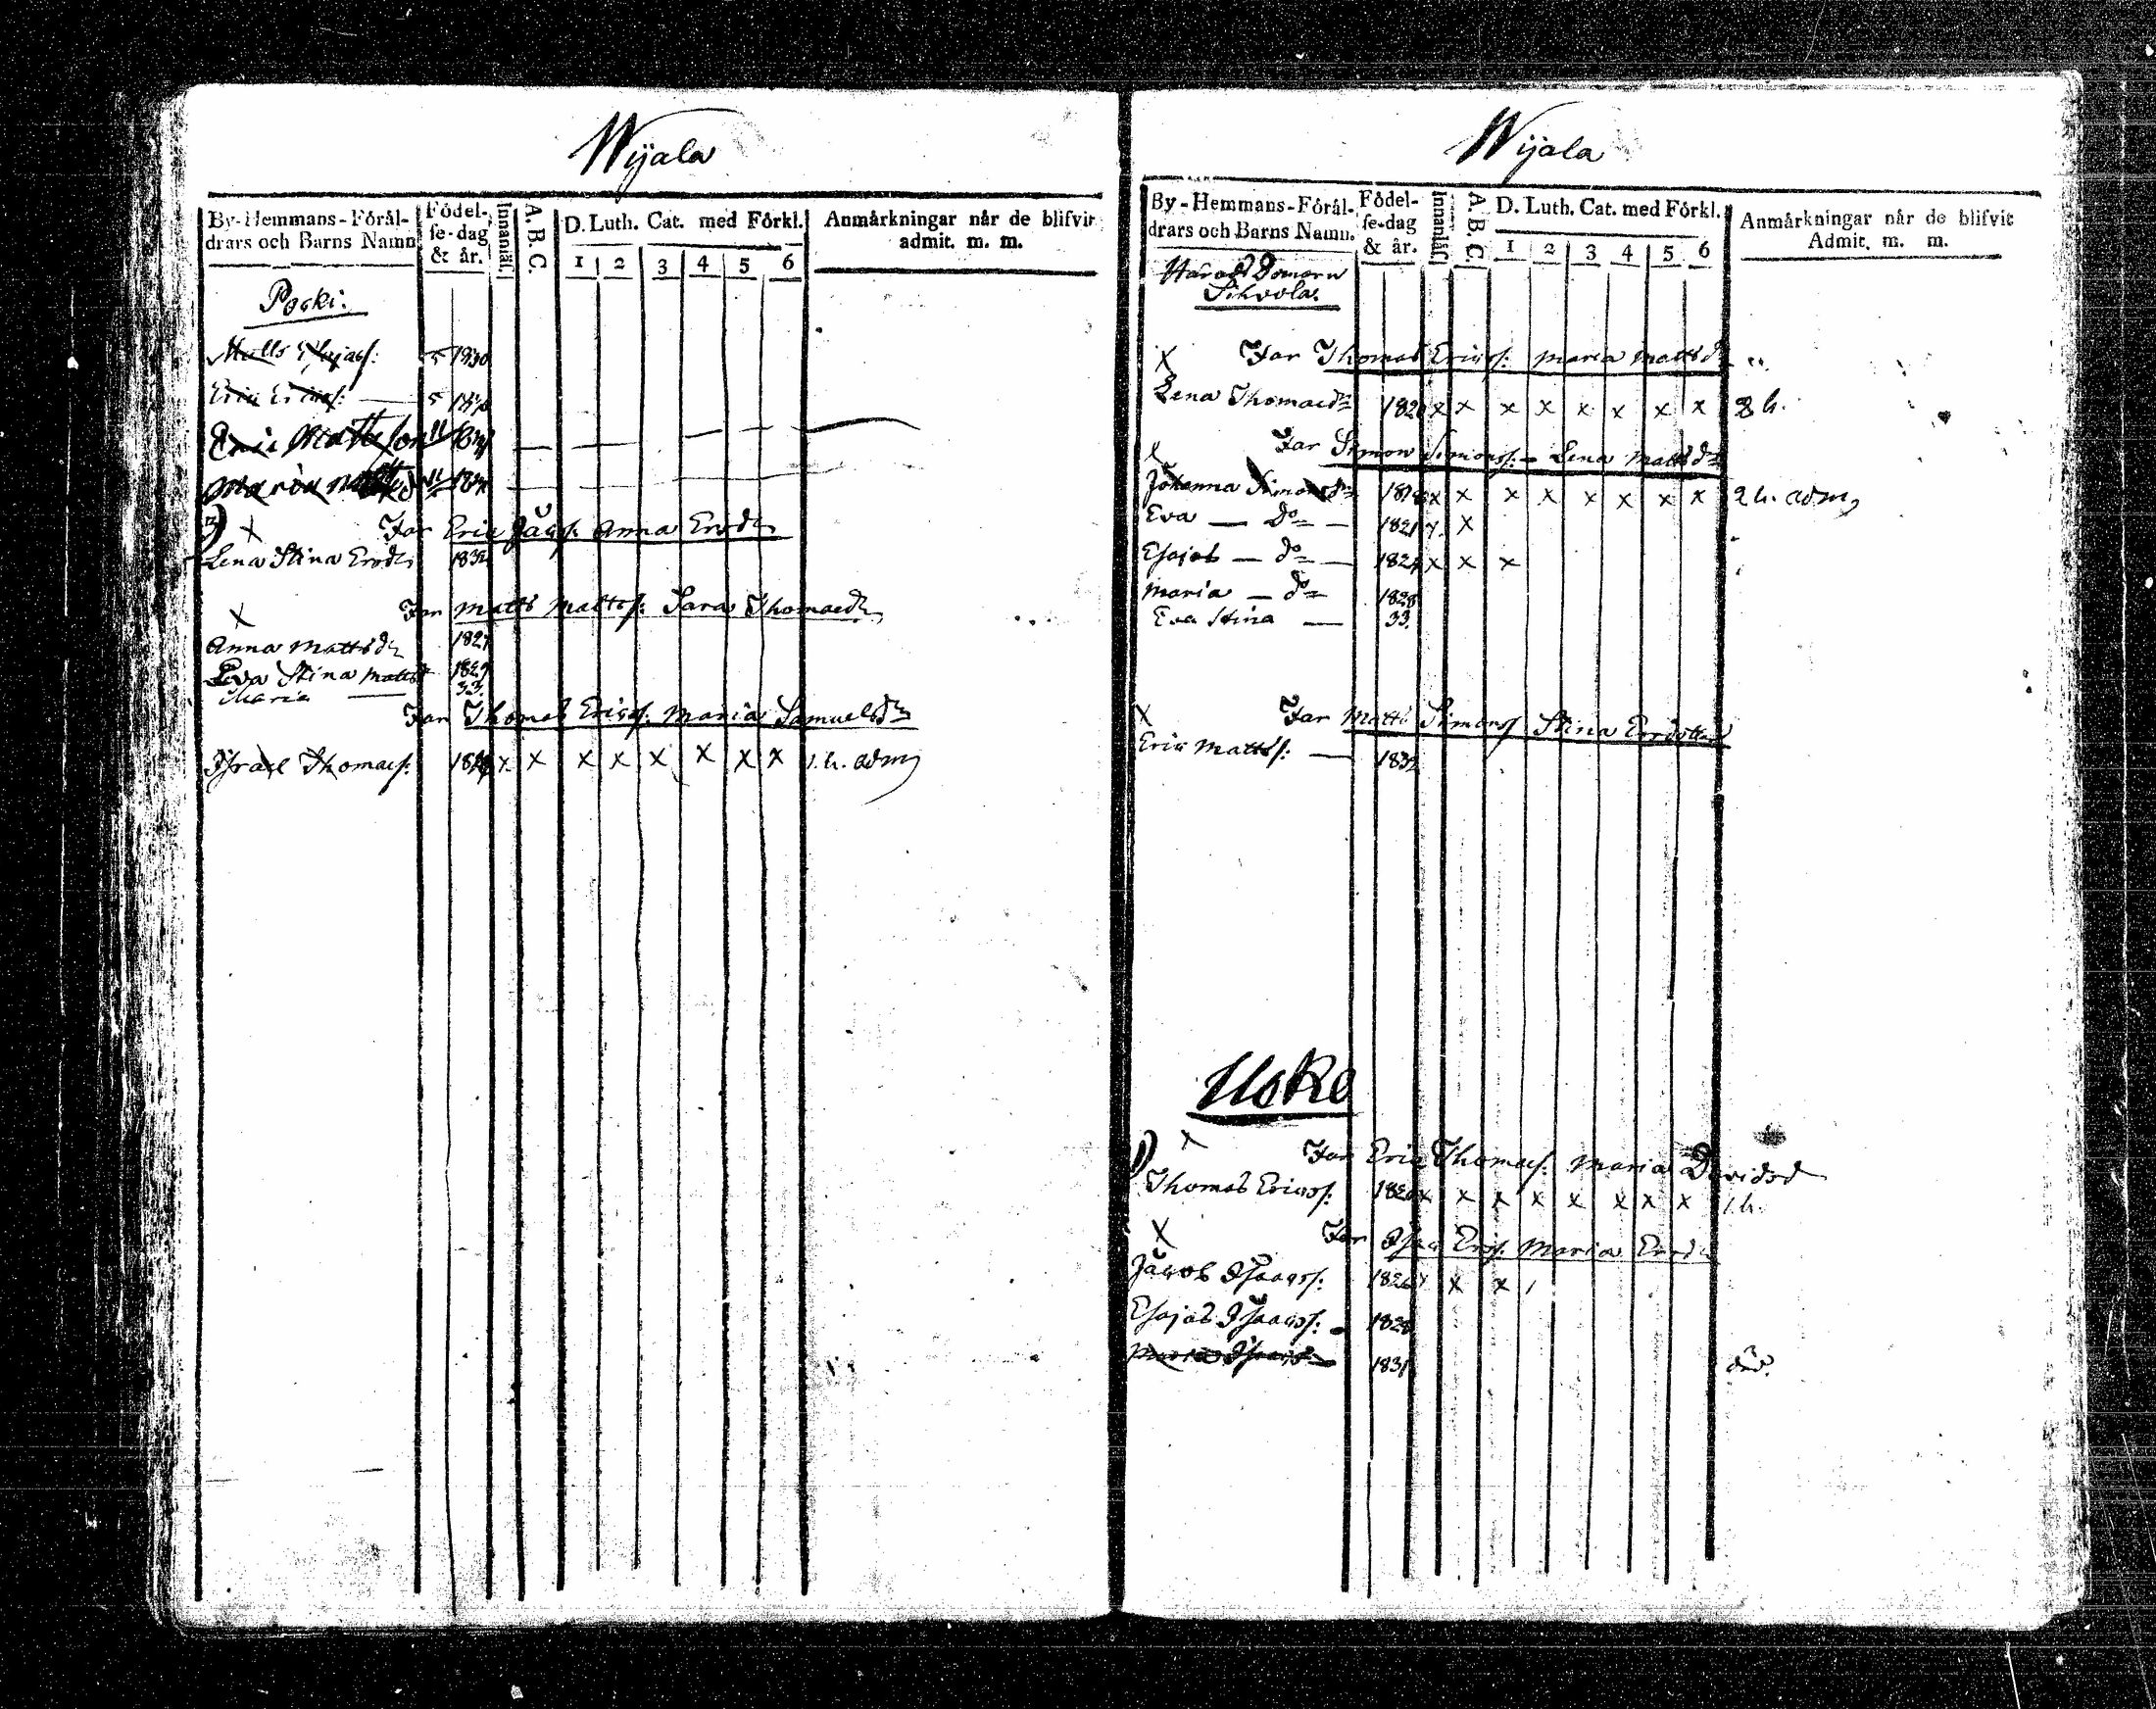 Wijala
By-Hemmans-Förål-
drars och Barns Namn
Födel-
se-dag
& år.
Innanläs.
A. B. C.
D. Luth. Cat. med Förkl.
1 2 3 4 5 6
Anmårkningar når de blifvit
admit. m. m.
Pocki:
Matts 5 1830
Eric Ericss: 5
Eric Mattsson 11
Maria
3) X Far Eric Jacss: Anna Ersdr
Lena Stina Ersdr 1832
X Far Matts Mattss: Sara Thomasdr
Anna Mattsdr 1827
Eva Stina Mattsd 1829
Maria — 33.
Far Thomas Ericss: Maria Samuelsdr
Israel Thomass: x x x x x x x x 1. h. adm
Wijala
By-Hemmans-Förål-
drars och Barns Namn.
Födel-
se-dag
& år.
Innanläs.
A. B. C.
D. Luth. Cat. med Förkl.
1 2 3 4 5 6
Anmårkningar når de blifvit
Admit. m. m.
Sihvola.
X Far Thomas Ericss: Maria Mattsd
Lena Thomasdr 1820 x x x x x x x x 2 h.
x Far Simon Simonss: – Lena Mattsdr
Johanna Simonsdr x x x x x x x x 2 h. adm
Eva — do — 1821 x x
Esajas — do — 1824 x x x
Maria — do 1828
Eva Stina — 33.
X Far Matts Simonss Stina Ersdotter
Eric Mattss: — 1832
Uske
1) x Far Eric Thomass: Maria Davidsd
Thomas Ericss: 1820 x x x x x x x x 1 h.
X Far Isac Erss: Maria Ersdr
Jacob Isaacss: 1826 x x x
Esajas Isaacss: 1828
Maria Isacsdr 1831 död.